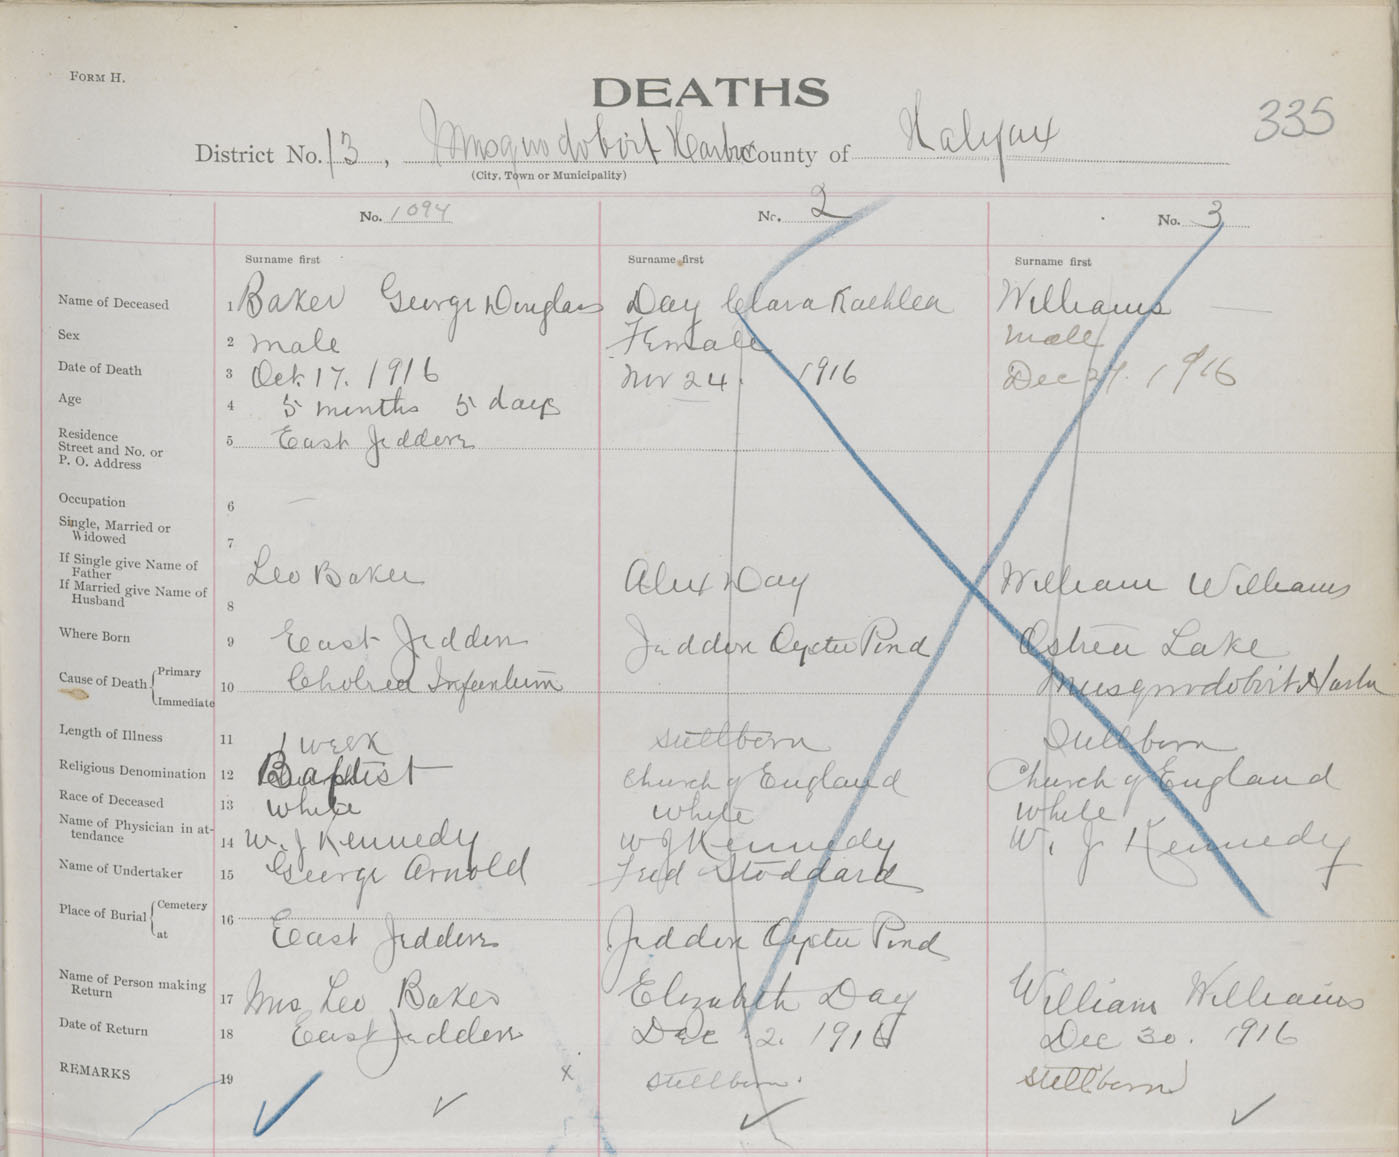 FORM H.
DEATHS
335
District No. 13, Musquodoboit Harbor County of Halifax
(City, Town or Municipality)
No. 1094 No. 2 No. 3
Surname first Surname first Surname first
Name of Deceased 1 Baker George Douglas Day Clara Williams
Sex 2 male Female male
Date of Death 3 Oct. 17. 1916 Nov 24. 1916 Dec 1916
Age 4 5 months 5 days
Residence
Street and No. or
P. O. Address 5 East Jeddore
Occupation 6 —
Single, Married or
Widowed 7
If Single give Name of
Father Leo Baker Alex Day William Williams
If Married give Name of
Husband 8
Where Born 9 East Jeddore Jeddore Oyster Pond Ostrea Lake
Cause of Death { Primary Cholrea Infantum Musquodoboit Harbor
Immediate 10
Length of Illness 11 1 week stillborn Stillborn
Religious Denomination 12 Baptist Church of England Church of England
Race of Deceased 13 White White White
Name of Physician in at-
tendance 14 W. J Kennedy W J Kennedy W. J Kennedy
Name of Undertaker 15 George Arnold Fred Stoddard
Place of Burial { Cemetery 16
at East Jeddore Jeddore Oyster Pond
Name of Person making
Return 17 Mrs Leo Baker Elizabeth Day William Williams
Date of Return 18 East Jeddore Dec 2. 1916 Dec 30. 1916
REMARKS 19 x stillborn. stillborn